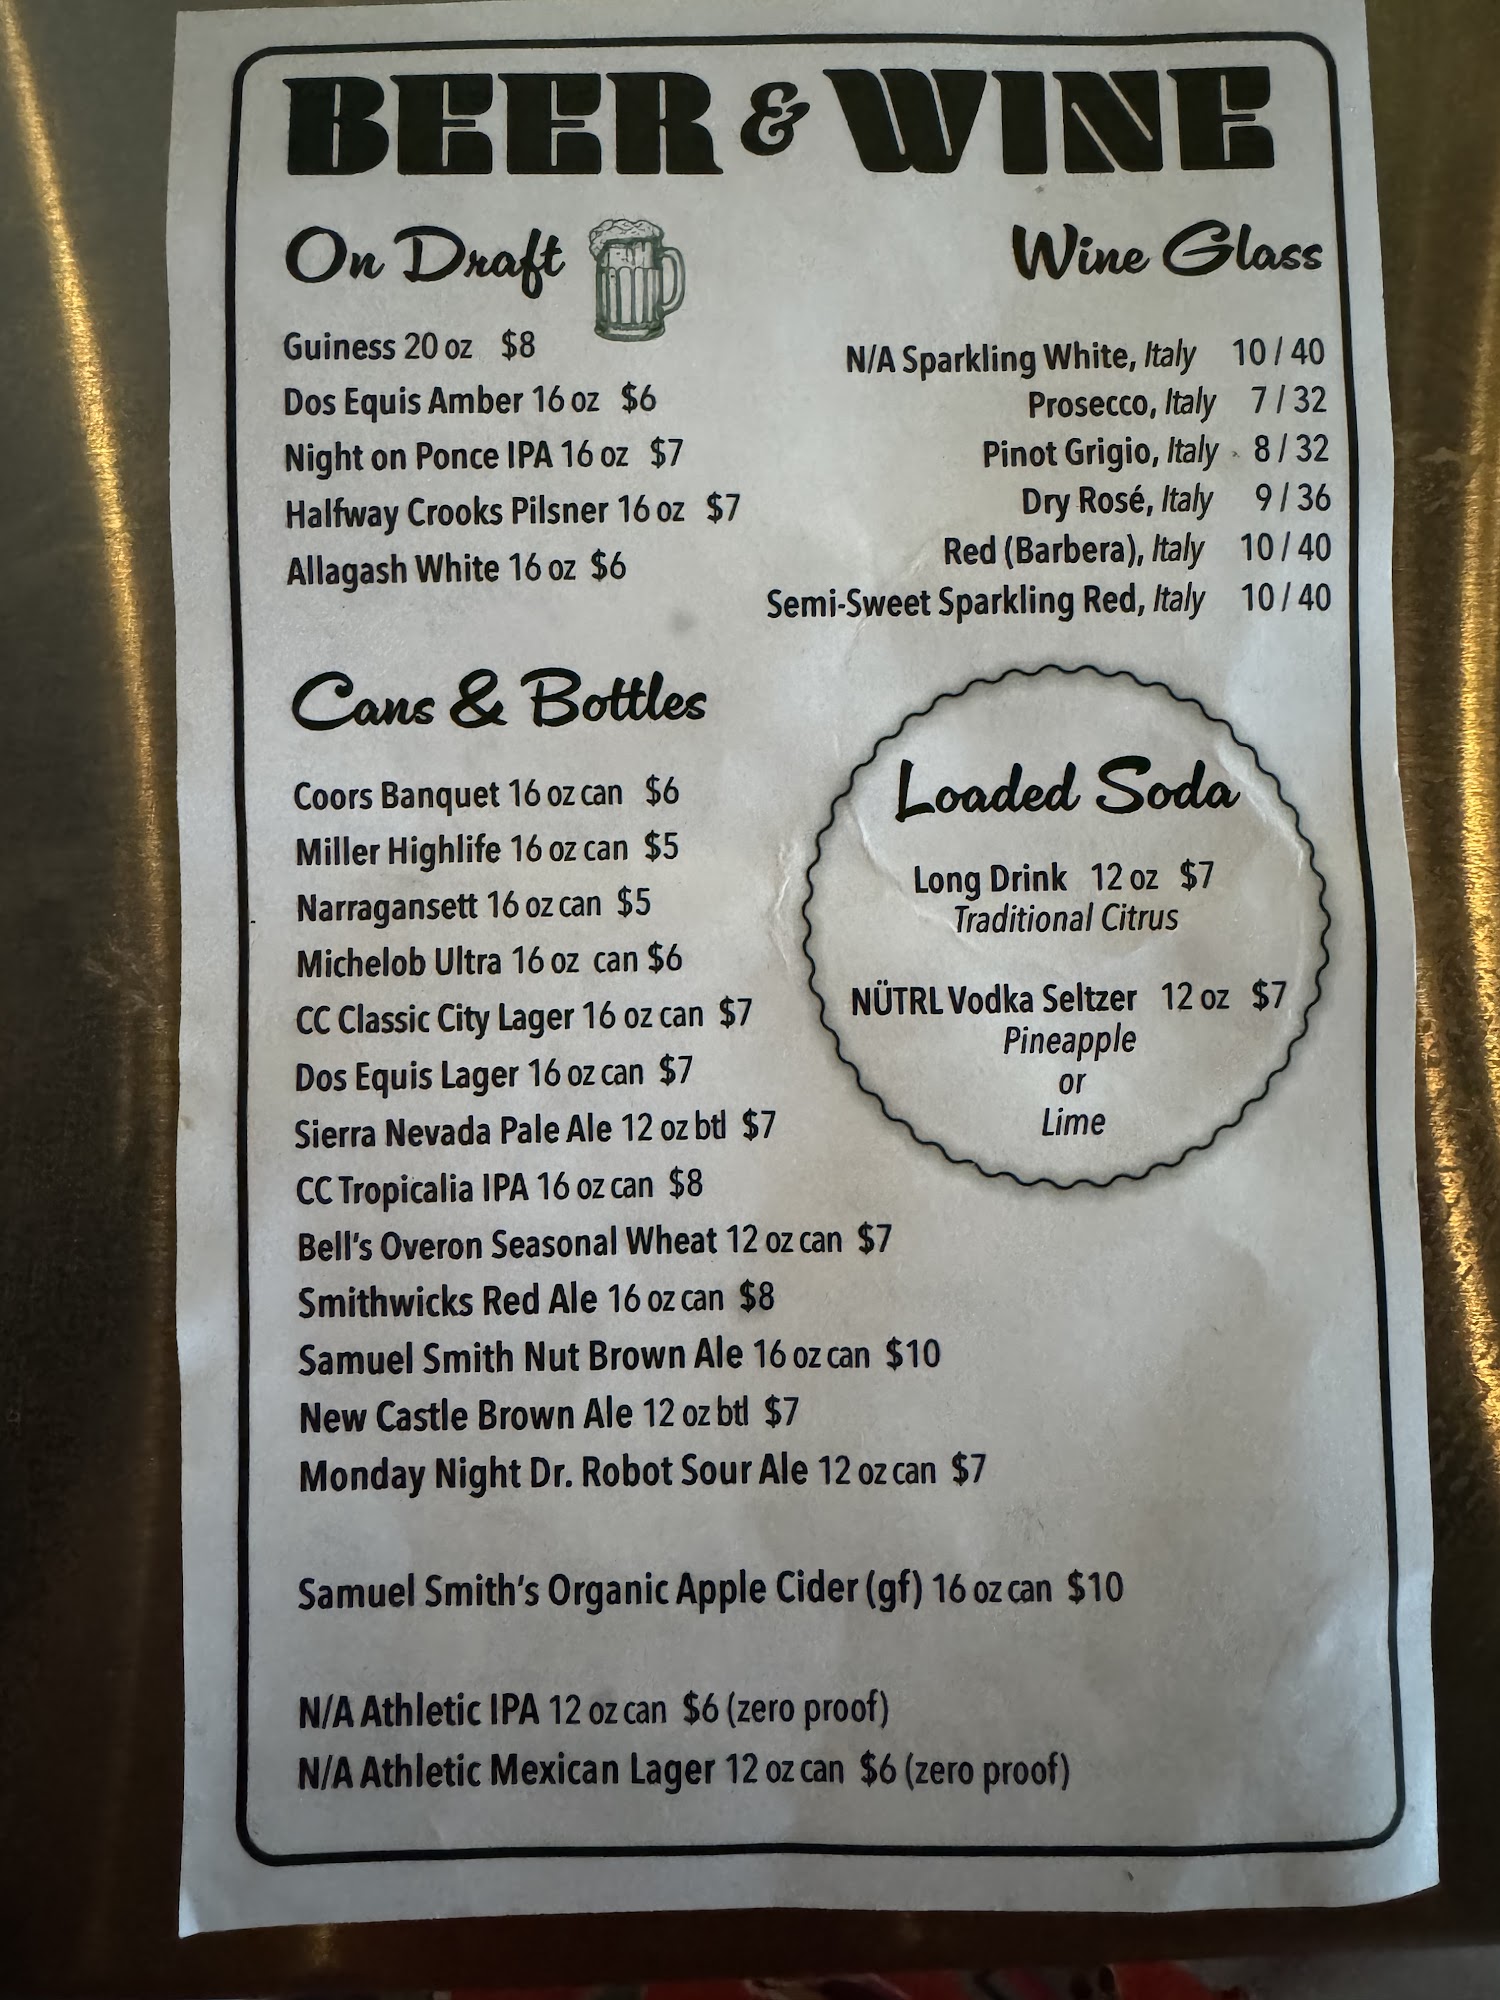 BEER & WINE
On Draft
Guiness 20 oz $8
Dos Equis Amber 16 oz $6
Night on Ponce IPA 16 oz $7
Halfway Crooks Pilsner 16 oz $7
Allagash White 16 oz $6
Wine Glass
N/A Sparkling White, Italy 10 / 40
Prosecco, Italy 7 / 32
Pinot Grigio, Italy 8 / 32
Dry Rosé, Italy 9 / 36
Red (Barbera), Italy 10 / 40
Semi-Sweet Sparkling Red, Italy 10 / 40
Cans & Bottles
Coors Banquet 16 oz can $6
Miller Highlife 16 oz can $5
Narragansett 16 oz can $5
Michelob Ultra 16 oz can $6
CC Classic City Lager 16 oz can $7
Dos Equis Lager 16 oz can $7
Sierra Nevada Pale Ale 12 oz btl $7
CC Tropicalia IPA 16 oz can $8
Bell's Overon Seasonal Wheat 12 oz can $7
Smithwicks Red Ale 16 oz can $8
Samuel Smith Nut Brown Ale 16 oz can $10
New Castle Brown Ale 12 oz btl $7
Monday Night Dr. Robot Sour Ale 12 oz can $7
Samuel Smith's Organic Apple Cider (gf) 16 oz can $10
N/A Athletic IPA 12 oz can $6 (zero proof)
N/A Athletic Mexican Lager 12 oz can $6 (zero proof)
Loaded Soda
Long Drink 12 oz $7
Traditional Citrus
NÜTRL Vodka Seltzer 12 oz $7
Pineapple
or
Lime